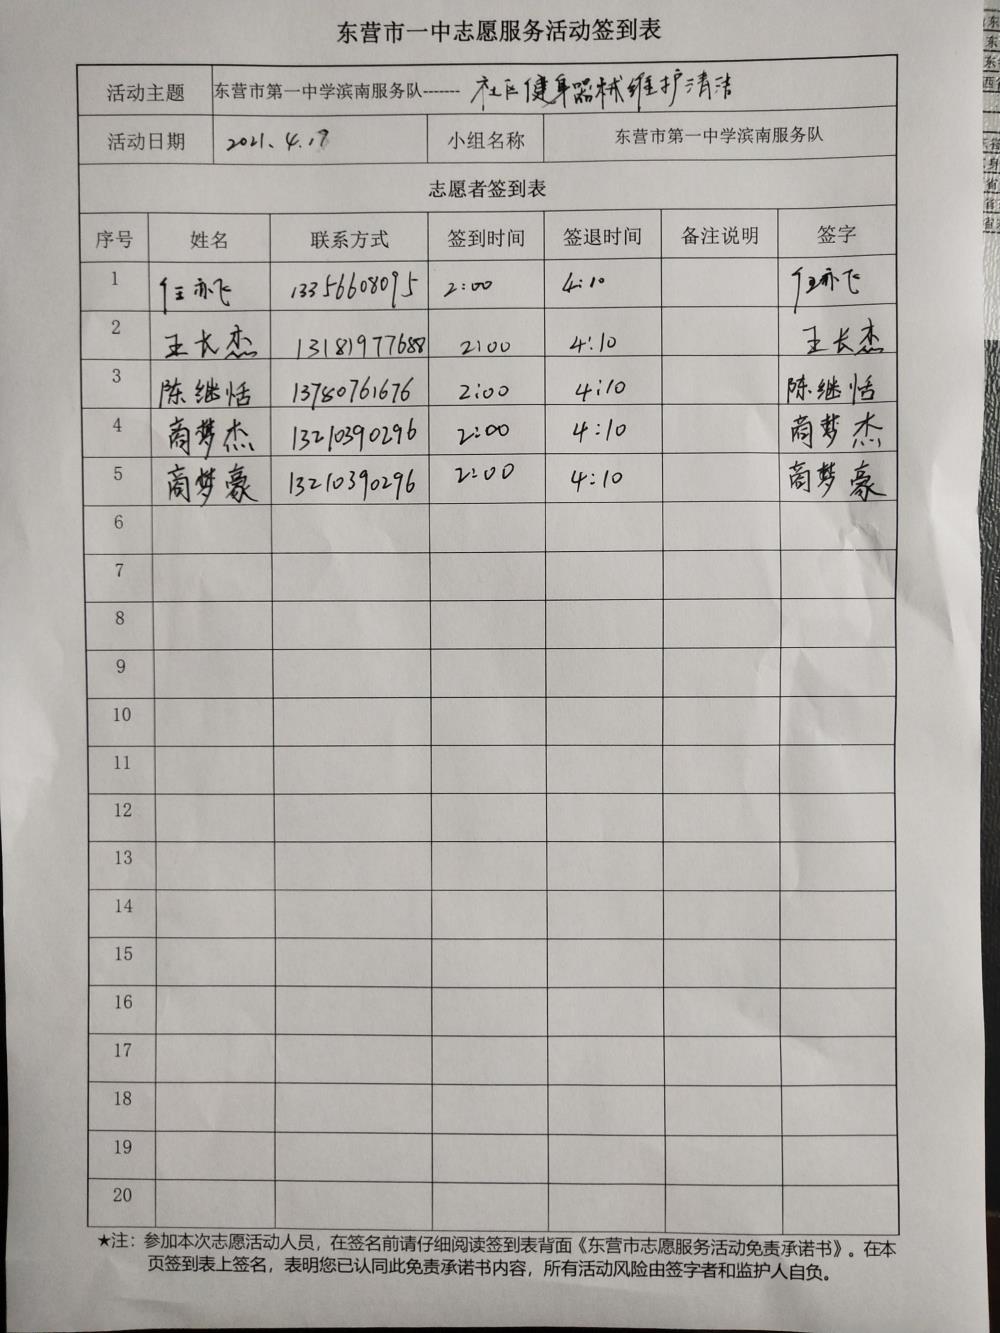 东营市一中志愿服务活动签到表
活动主题 东营市第一中学滨南服务队------- 社区健身器械维护清洁
活动日期 2021.4.17 小组名称 东营市第一中学滨南服务队
志愿者签到表
序号 姓名 联系方式 签到时间 签退时间 备注说明 签字
1 任亦飞 13356608095 2:00 4:10 任亦飞
2 王长杰 13181977688 2:00 4:10 王长杰
3 陈继恬 13780761676 2:00 4:10 陈继恬
4 商梦杰 13210390296 2:00 4:10 商梦杰
5 商梦豪 13210390296 2:00 4:10 商梦豪
6
7
8
9
10
11
12
13
14
15
16
17
18
19
20
★注：参加本次志愿活动人员，在签名前请仔细阅读签到表背面《东营市志愿服务活动免责承诺书》。在本
页签到表上签名，表明您已认同此免责承诺书内容，所有活动风险由签字者和监护人自负。